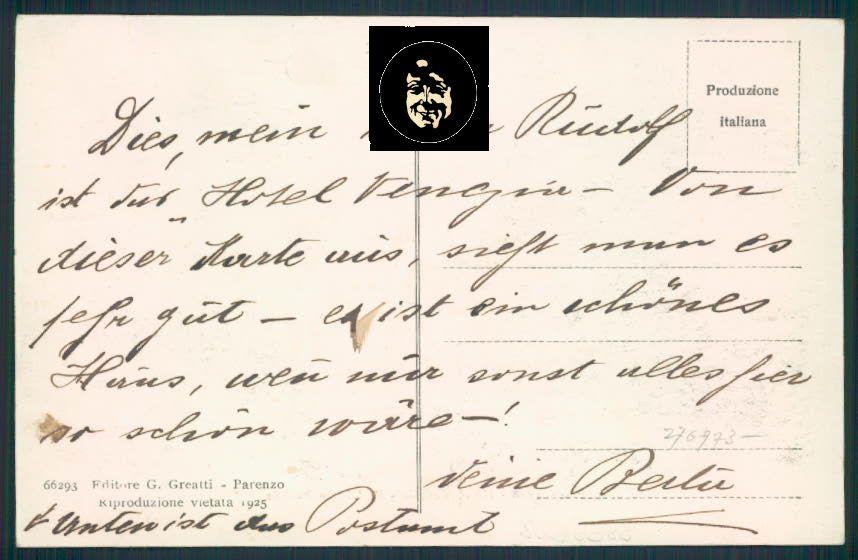 Produzione
italiana
Dies, mein Rudolf
ist das Hotel Venezia - Von
dieser Karte aus, sieht man es
sehr gut - es ist ein schönes
Haus, wen nur sonst alles hier
so schön wäre -!
276973-
Deine Berta
66293 Editore G. Greatti - Parenzo
Riproduzione vietata 1925
Unten ist das Postamt